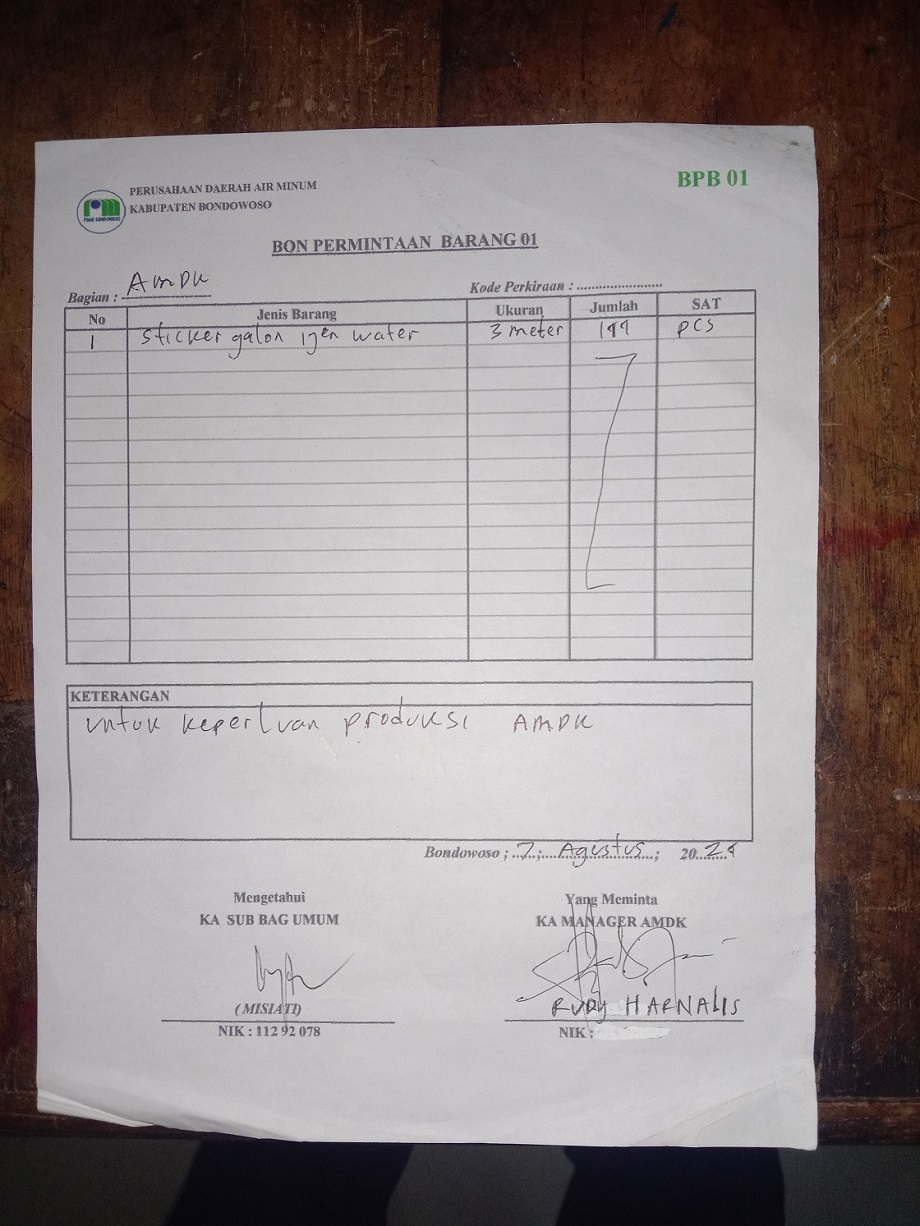 PERUSAHAAN DAERAH AIR MINUM
KABUPATEN BONDOWOSO
BPB 01
BON PERMINTAAN BARANG 01
Bagian : AMDK
Kode Perkiraan : ........................
No Jenis Barang Ukuran Jumlah SAT
1 Sticker galon ijen water 3 meter pcs
KETERANGAN
untuk keperluan produksi AMDK
Bondowoso ; 7 ; Agustus ; 20
Mengetahui Yang Meminta
KA SUB BAG UMUM KA MANAGER AMDK
(MISIATI) RUDY HARNALIS
NIK : 112 92 078 NIK :